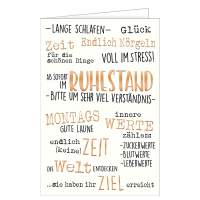 -LANGE SCHLAFEN- Glück
Zeit Endlich Nörgeln
für die schönen Dinge VOLL IM STRESS!
AB SOFORT IM RUHESTAND
-BITTE UM SEHR VIEL VERSTÄNDNIS-
MONTAGS innere
GUTE LAUNE WERTE
zählen
endlich (keine) ZEIT -ZUCKERWERTE
-BLUTWERTE
-LEBERWERTE
die Welt ENTDECKEN
...sie haben ihr ZIEL erreicht